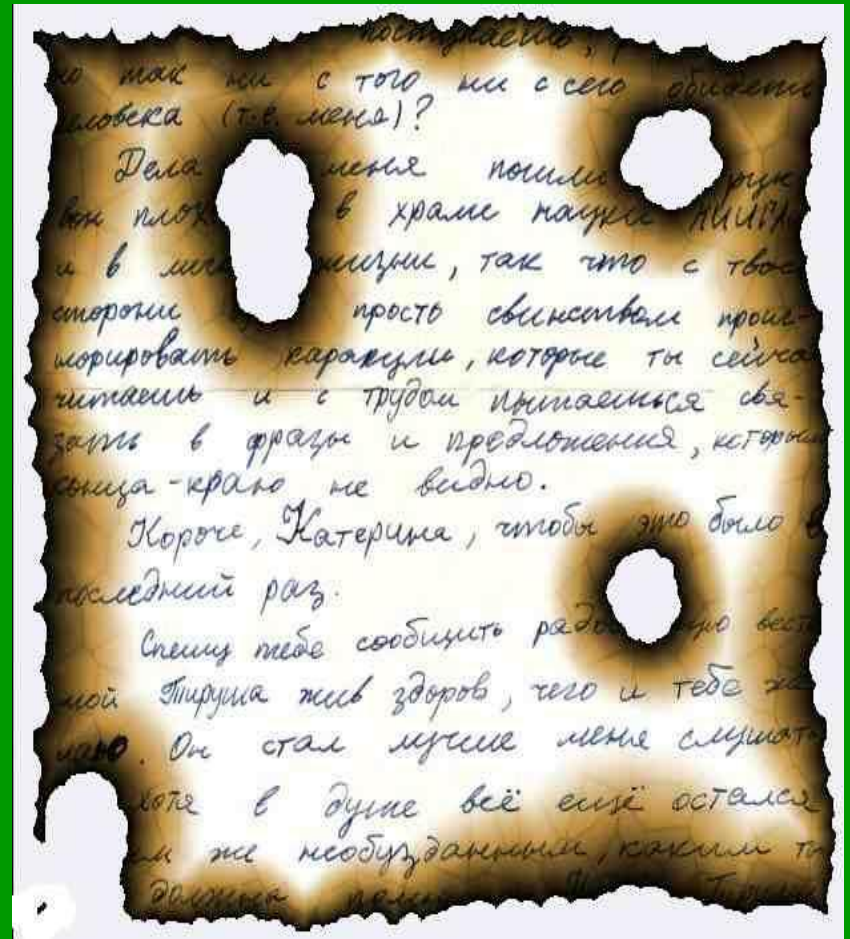 поступаешь,
но так ни с того ни с сего обидеть
человека (т.е. меня)?
Дела меня пошли
вон плох в храме науки
и в лич жизни, так что с твоей
стороны прость свинством проиг-
норировать каракули, которые ты сейча
читаешь и с трудом пытаешься свя-
зать в фразы и предложения, которым
конца-краю не видно.
Короче, Катерина, чтобы это было в
последний раз.
Спешу тебе сообщить радо ую весть
мой Тируша жив здоров, чего и тебе же
лаю. Он стал лучше меня слушать
хотя в душе всё ещё остался
м же необузданным, каким ты
должна